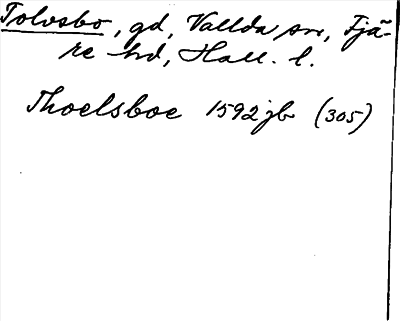 Tolvsbo, gd, Vallda sn, Fjä-
re hd, Hall. l.
Thoelsboe 1592 jb (305)